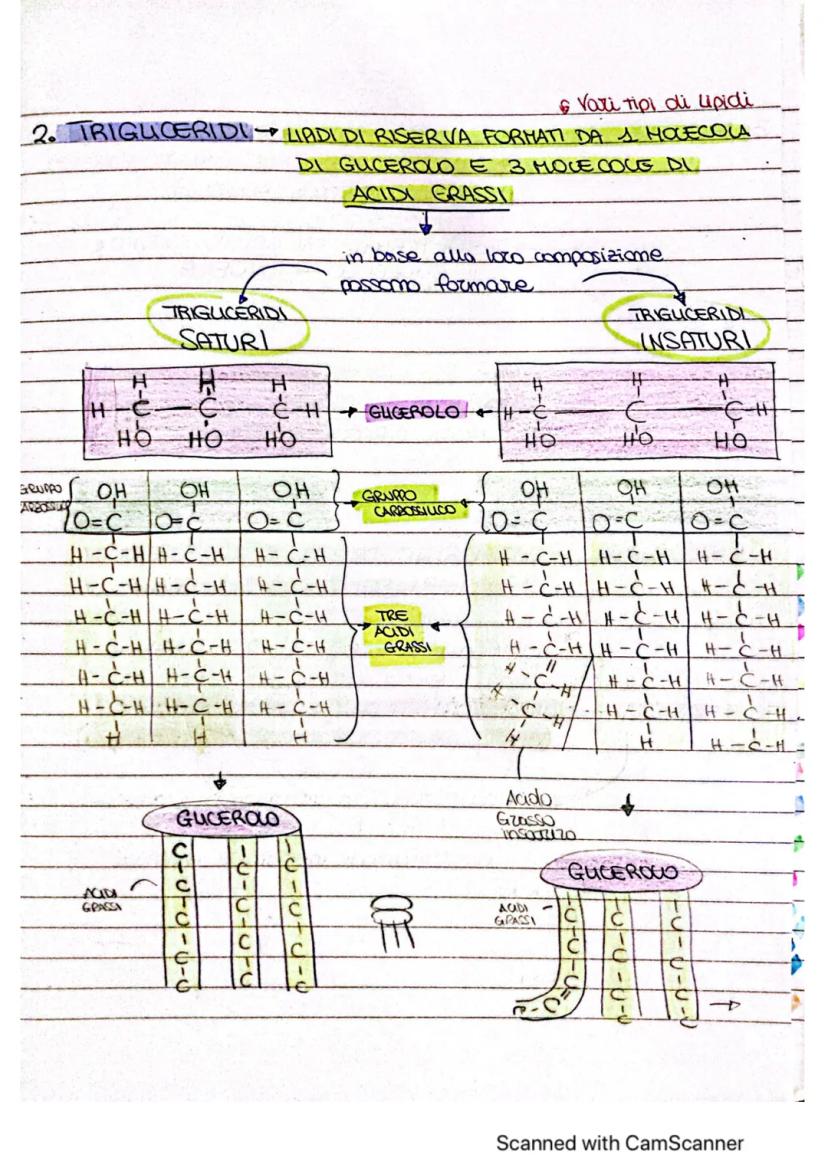 Vari tipi di lipidi
2. TRIGLICERIDI → LIPIDI DI RISERVA FORMATI DA 1 MOLECOLA
DI GLICEROLO E 3 MOLECOLE DI
ACIDI GRASSI
in base alla loro composizione
possono formare
TRIGLICERIDI TRIGLICERIDI
SATURI INSATURI
H H H H H H
H-C-C-C-H → GLICEROLO ← H-C-C-C-H
HO HO HO HO HO HO
GRUPPO OH OH OH GRUPPO OH OH OH
CARBOSSILICO O=C O=C O=C CARBOSSILICO O=C O=C O=C
H-C-H H-C-H H-C-H H-C-H H-C-H H-C-H
H-C-H H-C-H H-C-H H-C-H H-C-H H-C-H
H-C-H H-C-H H-C-H TRE H-C-H H-C-H H-C-H
ACIDI
H-C-H H-C-H H-C-H GRASSI H-C-H H-C-H H-C-H
H-C-H H-C-H H-C-H H C H H-C-H H-C-H
H-C-H H-C-H H-C-H C H H-C-H H-C-H
H H H H H H-C-H
Acido
Grasso
insaturo
GLICEROLO GLICEROLO
ACIDI
GRASSI
C-C-C-C-C-C
C-C-C-C-C
C-C-C-C-C
ACIDI
GRASSI
C-C-C=C-C
C-C-C-C-C
C-C-C-C-C
Scanned with CamScanner